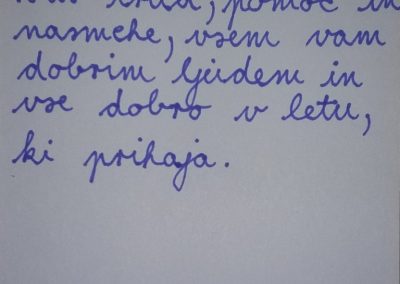 pomoč in
nasmehe, vsem vam
dobrim ljudem in
vse dobro v letu,
ki prihaja.